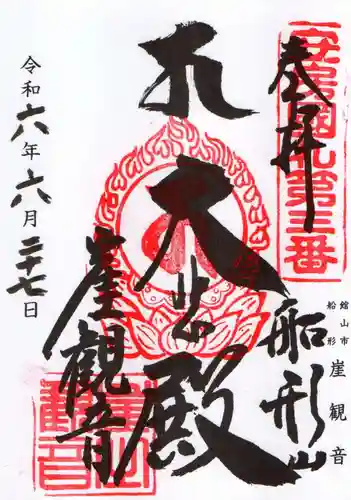 奉拝
安房国札第三番
船形山
館山市
船形
崖観音
大悲殿
崖観音
令和六年六月二十七日